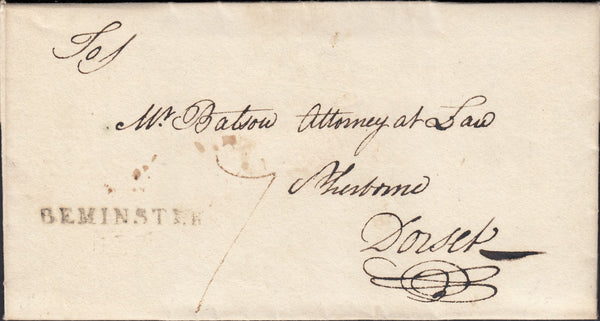 To
Mr. Batson Attorney at Law
Sherborne
7
BEMINSTER
Dorset